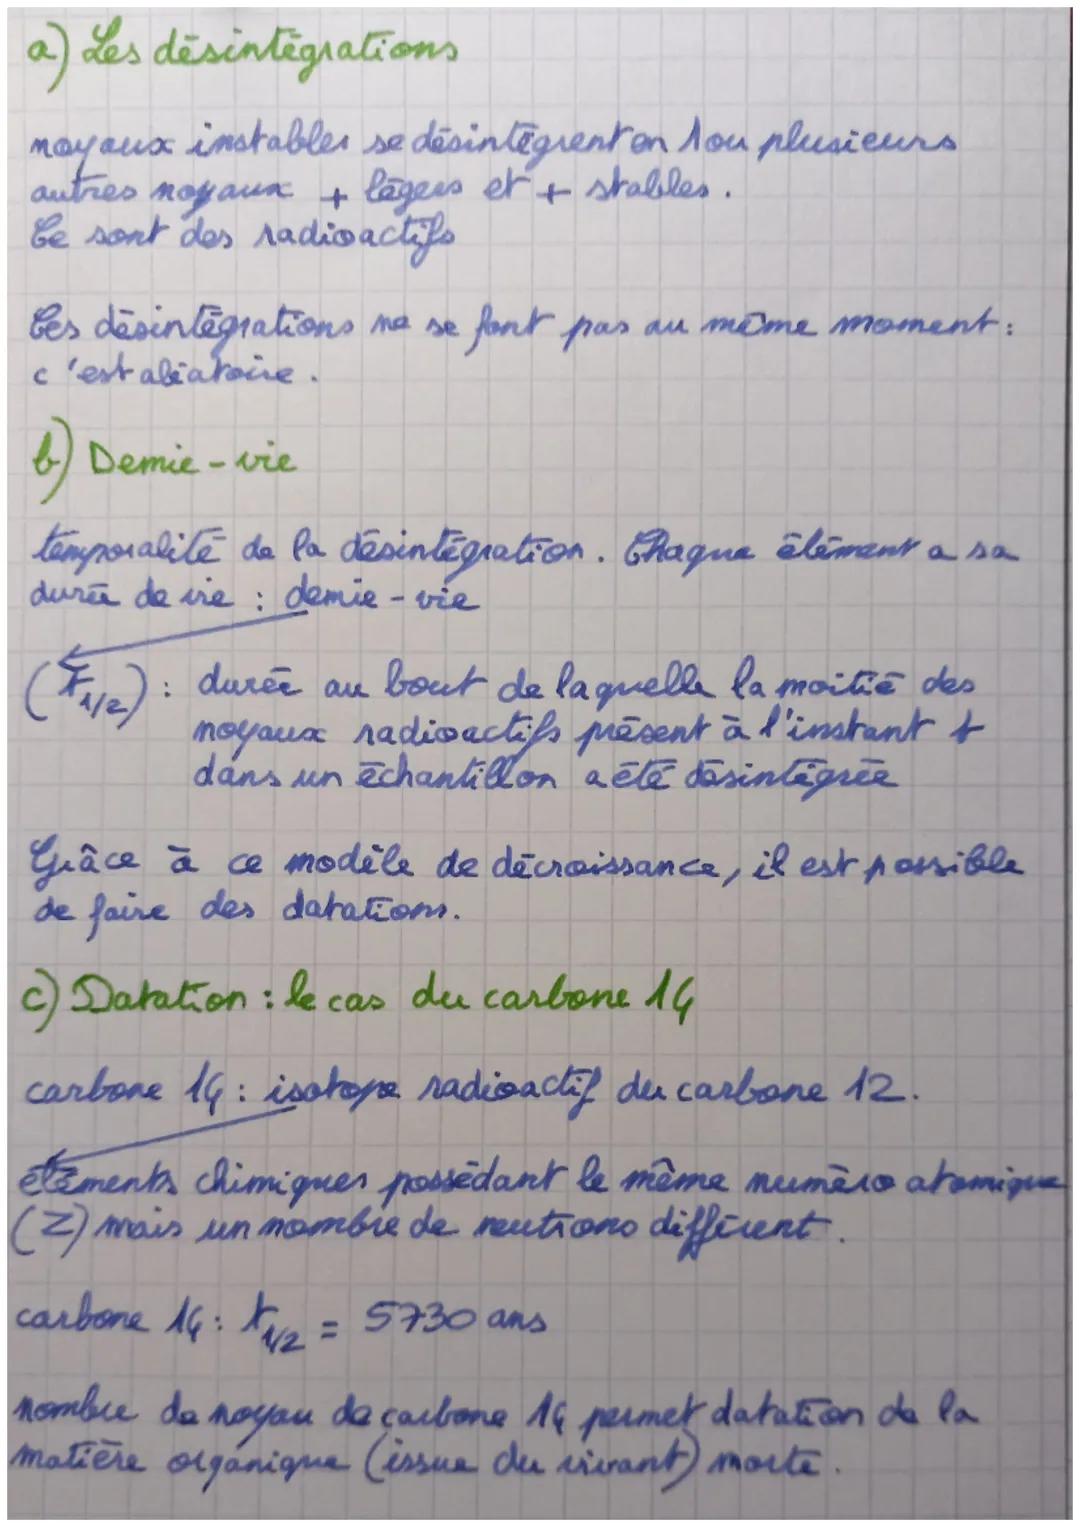 a) Les désintégrations
noyaux instables se désintègrent en 1 ou plusieurs
autres noyaux + légers et + stables.
Ce sont des radioactifs
Ces désintégrations ne se font pas au même moment :
c'est aléatoire.
b) Demie-vie
temporalité de la désintégration. Chaque élément a sa
durée de vie : demie-vie
(t1/2) : durée au bout de laquelle la moitié des
noyaux radioactifs présent à l'instant t
dans un échantillon a été désintégrée
Grâce à ce modèle de décroissance, il est possible
de faire des datations.
c) Datation : le cas du carbone 14
carbone 14 : isotope radioactif du carbone 12.
éléments chimiques possédant le même numéro atomique
(Z) mais un nombre de neutrons différent.
carbone 14 : t1/2 = 5730 ans
nombre de noyau de carbone 14 permet datation de la
matière organique (issue du vivant) morte.